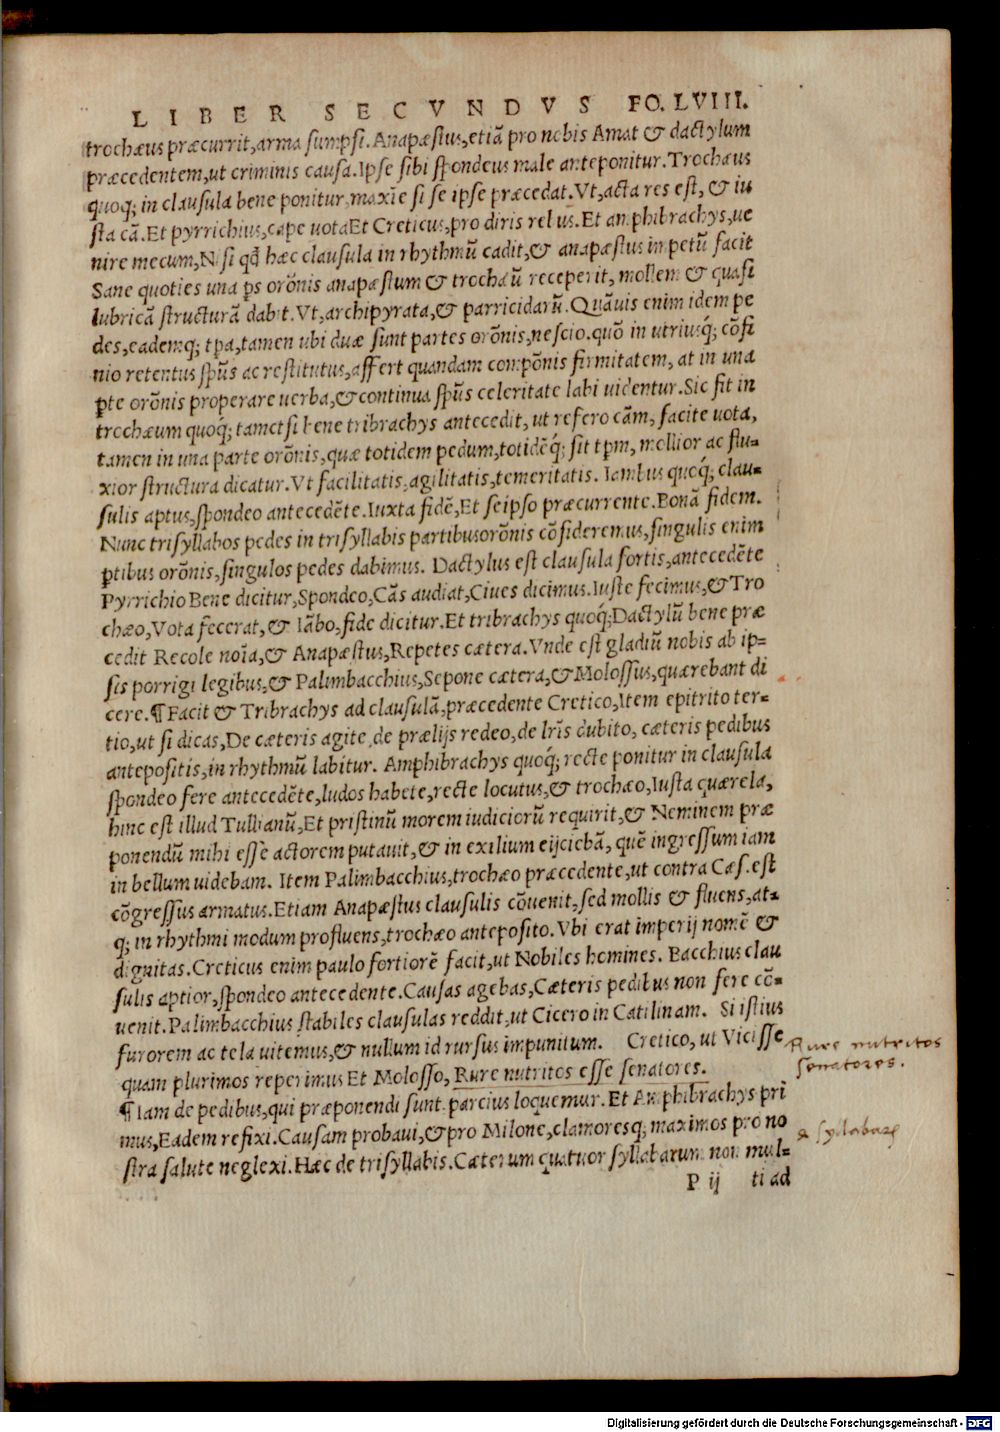 LIBER SECVNDVS FO. LVIII.
trochæus præcurrit, arma sumpsi. Anapæstus, etiã pro nobis Amat & dactylum
præcedentem, ut criminis causa. Ipse sibi spondeus male anteponitur. Trochæus
quoq; in clausula bene ponitur, maxĩe si se ipse præcedat. Vt, acta res est, & iu
sta cã. Et pyrrichius, cape uota Et Creticus, pro diris rel us. Et amphibrachys, ue
nire mecum, Nisi qđ hæc clausula in rhythmũ cadit, & anapæstus impetũ facit
Sane quoties una ꝑs orõnis anapæstum & trochæũ receperit, mollem & quasi
lubricã structurã dabit. Vt, archipyrata, & parricidarũ. Quãuis enim idem pe
des, eademq; tpa, tamen ubi duæ sunt partes orõnis, nescio. quõ in utriusq́; cõfi
nio retentus spũs ac restitutus, affert quandam compõnis firmitatem, at in una
ꝑte orõnis properare uerba, & continua spũs celeritate labi uidentur. Sic fit in
trochæum quoq́; tametsi bene tribrachys antecedit, ut refero cãm, facite uota,
tamen in una parte orõnis, quæ totidem pedum, totidẽq́; sit tpm, mollior ac flu-
xior structura dicatur. Vt facilitatis, agilitatis, temeritatis. Iambus quoq́; clau-
sulis aptus, spondeo antecedẽte. Iuxta fidẽ, Et seipso præcurrente. Bonã fidem.
Nunc trisyllabos pedes in trisyllabis partibus orõnis cõsideremus, singulis enim
ꝑtibus orõnis, singulos pedes dabimus. Dactylus est clausula fortis, antecedẽte
Pyrrichio Bene dicitur, Spondeo, Cãs audiat, Ciues dicimus. Iuste fecimus, & Tro
chæo, Vota fecerat, & Iãbo, fide dicitur. Et tribrachys quoq́; Dactylũ bene præ
cedit Recole noĩa, & Anapæstus, Repetes cætera. Vnde est gladiũ nobis ab ip-
sis porrigi legibus, & Palimbacchius, Sepone cætera, & Molossus, quærebant di
cere. ¶ Facit & Tribrachys ad clausulã, præcedente Cretico, Item epitrito ter-
tio, ut si dicas, De cæteris agite, de prælijs redeo, de lrĩs dubito, cæteris pedibus
antepositis, in rhythmũ labitur. Amphibrachys quoq́; recte ponitur in clausula
spondeo fere antecedẽte, ludos habete, recte locutus, & trochæo, Iusta quærela,
hinc est illud Tullianũ, Et pristinũ morem iudiciorũ requirit, & Neminem præ
ponendũ mihi esse actorem putauit, & in exilium eijciebã, quẽ ingressum iam
in bellum uidebam. Item Palimbacchius, trochæo præcedente, ut contra Cæs. est
cõgressus armatus. Etiam Anapæstus clausulis cõuenit, sed mollis & fluens, at-
q; in rhythmi modum profluens, trochæo anteposito. Vbi erat imperij nomẽ &
dignitas. Creticus enim paulo fortiorẽ facit, ut Nobiles homines. Bacchius clau
sulis aptior, spondeo antecedente. Causas agebas, Cæteris pedibus non fere cõ-
uenit. Palimbacchius stabiles clausulas reddit, ut Cicero in Catilinam. Si istius
furorem ac tela uitemus, & nullum id rursus impunitum. Cretico, ut Vicisse
quam plurimos reperimus Et Molosso, Rure nutritos esse senatores.
¶ Iam de pedibus, qui præponendi sunt parcius loquemur. Et Amphibrachys pri
mus, Eadem refixi. Causam probaui, & pro Milone, clamoresq; maximos pro no
stra salute neglexi. Hæc de trisyllabis. Cæterum quatuor syllabarum non mul-
P ij ti ad
Rure nutritos
senatores.
4 syllabarum
Digitalisierung gefördert durch die Deutsche Forschungsgemeinschaft - DFG